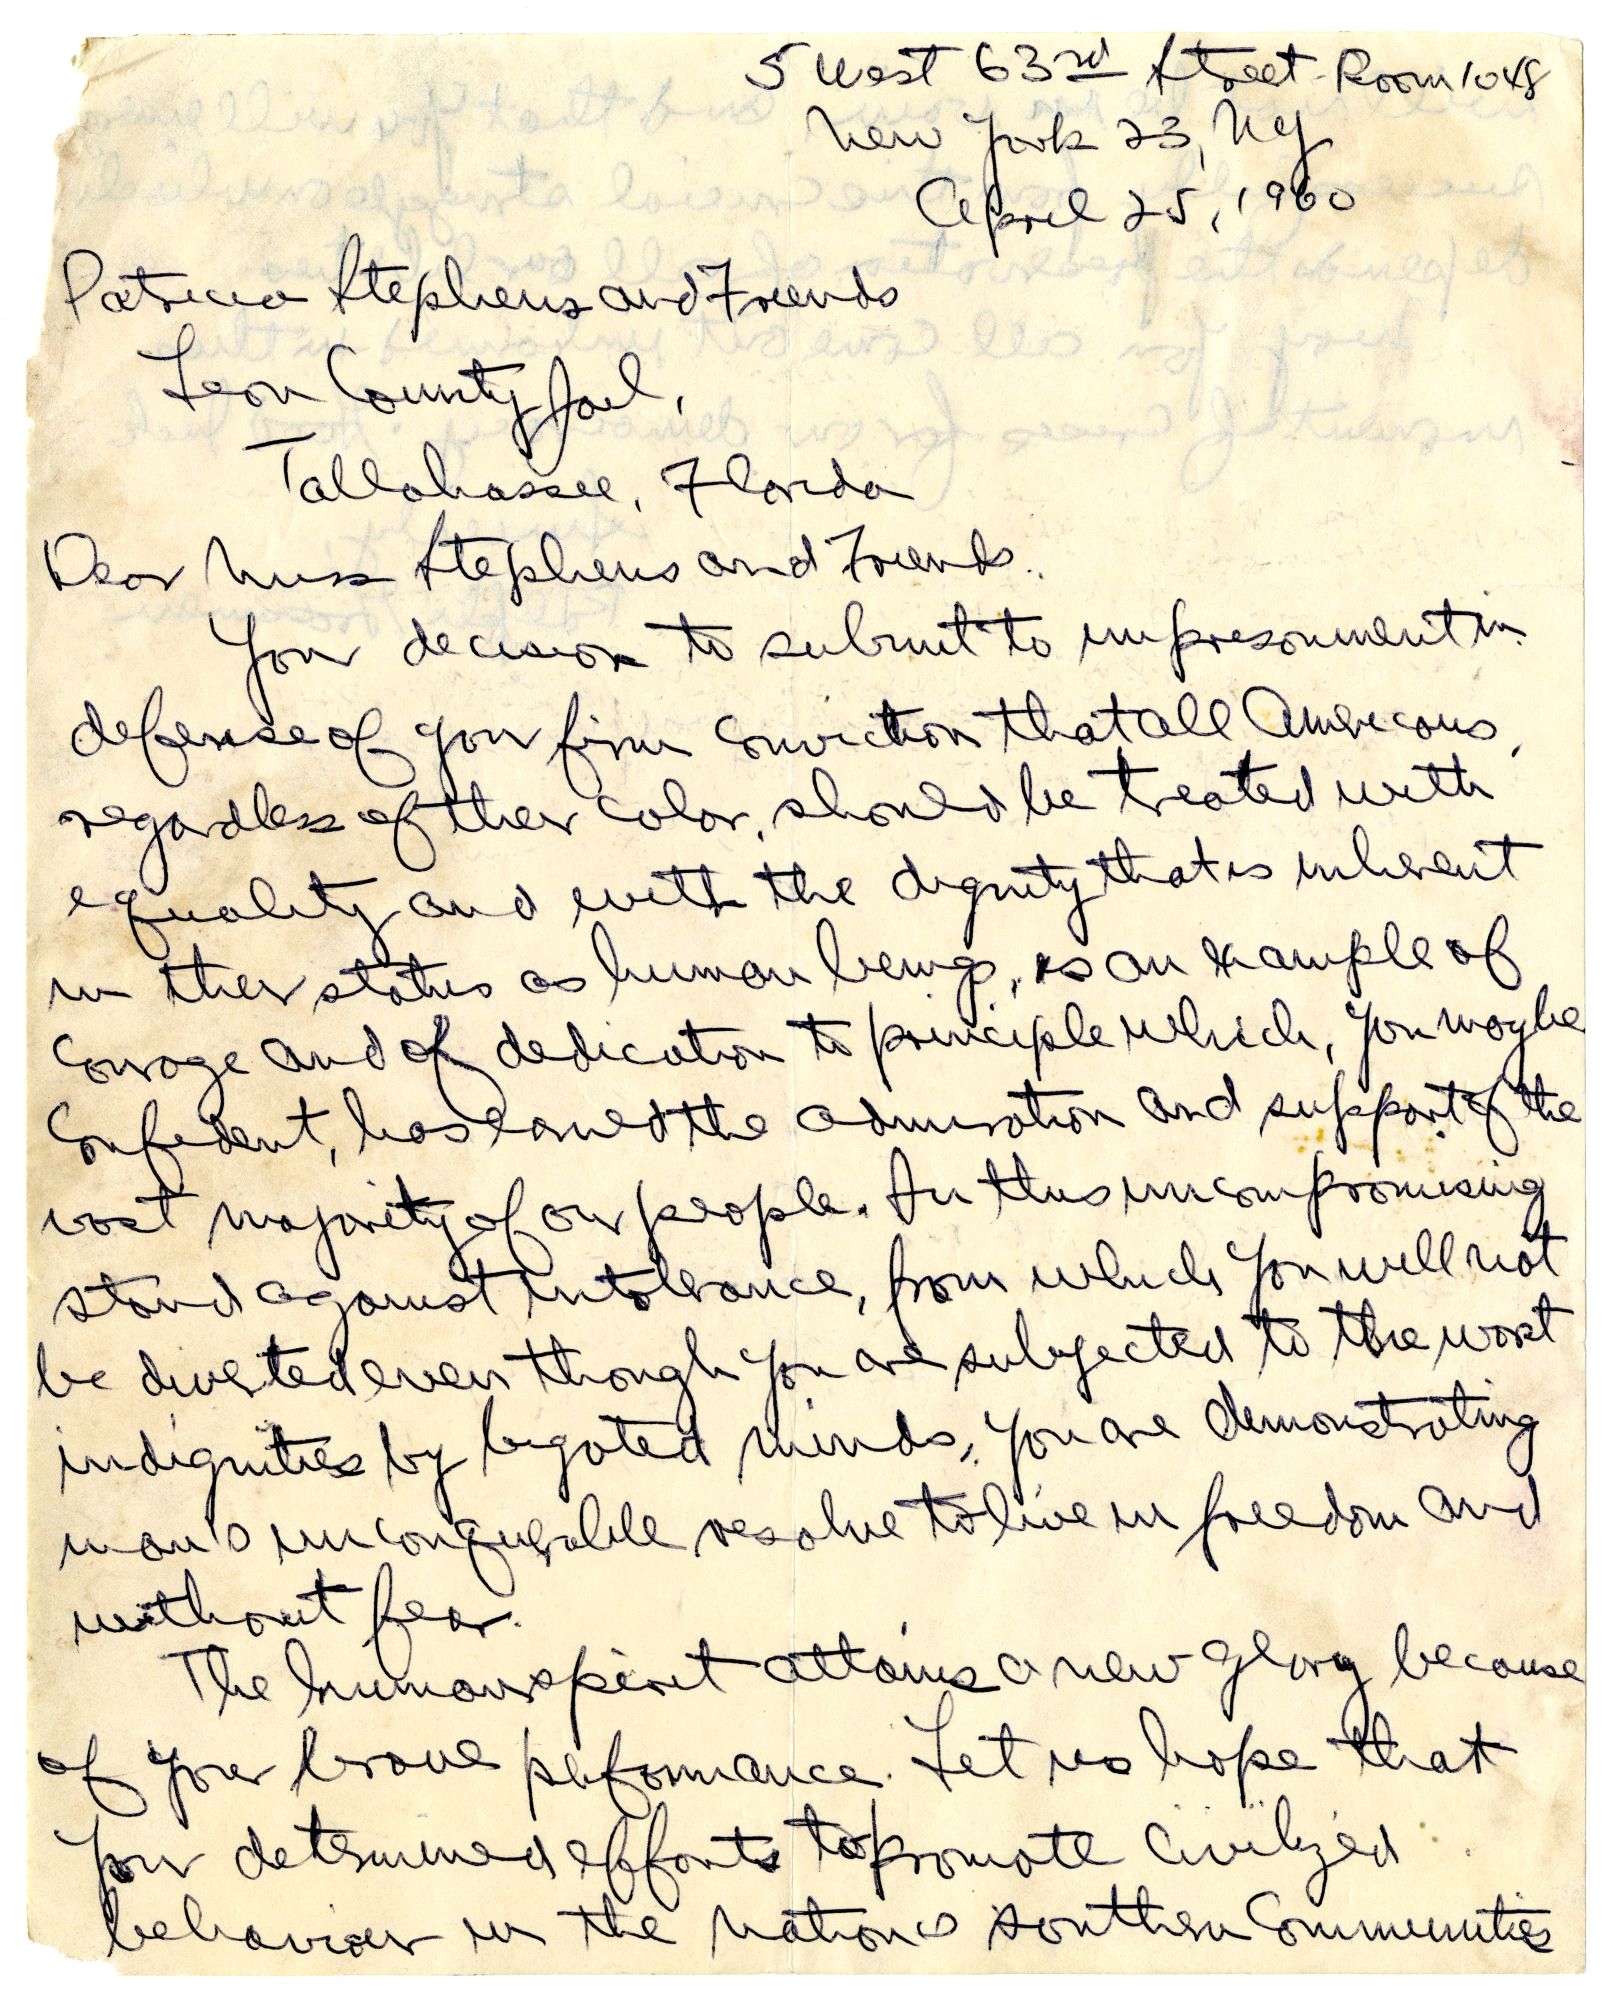 5 West 63rd Street Room 1048
New York 23, NY
April 25, 1960
Patricia Stephens and Friends
Leon County Jail,
Tallahassee, Florida
Dear Miss Stephens and Friends:
Your decision to submit to imprisonment in
defense of your firm conviction that all Americans,
regardless of their color, should be treated with
equality and with the dignity that is inherent
in their status as human beings, is an example of
courage and of dedication to principle which, you may be
confident, has earned the admiration and support of the
vast majority of our people. In this uncompromising
stand against intolerance, from which you will not
be diverted even though you are subjected to the worst
indignities by bigoted minds, you are demonstrating
man's unconquerable resolve to live in freedom and
without fear.
The human spirit attains a new glory because
of your brave performance. Let us hope that
your determined efforts to promote civilized
behavior in the nation's southern communities